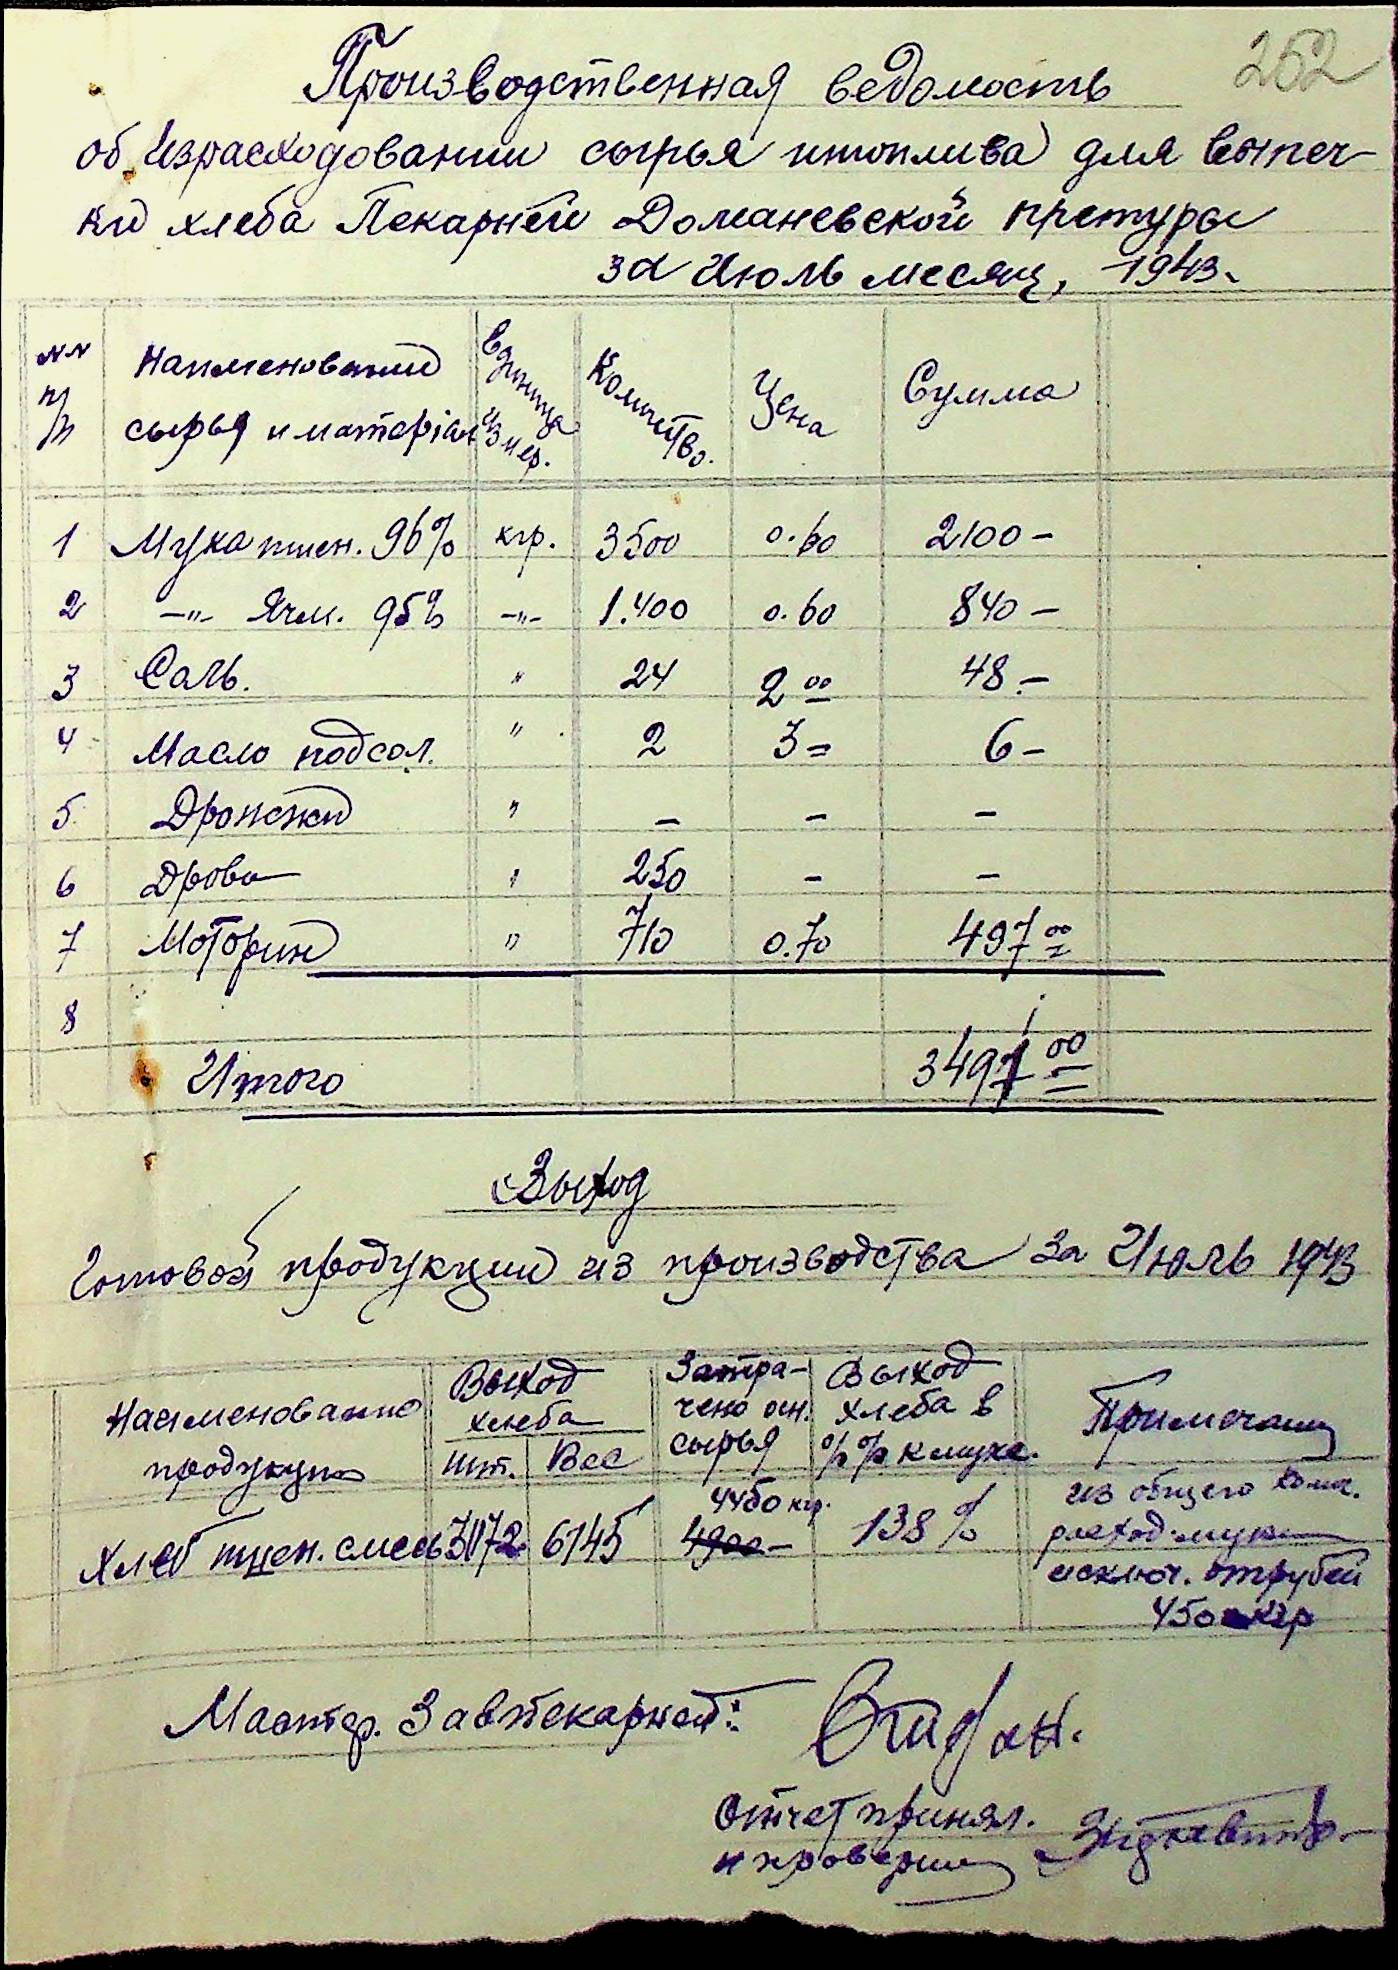 252
Производственная ведомость
об израсходовании сырья и топлива для выпеч-
ки хлеба Пекарней Доманевской претуры
за Июль месяц, 1943.
№№ п/п Наименование сырья и матеріал Единица измер. Количество. Цена Сумма
1 Мука пшен. 96% кгр. 3500 0.60 2100 –
2 –"– Ячм. 95% –"– 1.400 0.60 840 –
3 Соль. " 24 2 00 48. –
4 Масло подсол. " 2 3 = 6 –
5 Дрожжи " – – –
6 Дрова " 250 – –
7 Моторин " 710 0.70 497 00
8
Итого 3491 00
Выход
Готовой продукции из производства за Июль 1943
Наименование продукции Выход хлеба шт. Вес Затра-чено осн. сырья Выход хлеба в %% к муке. Примечание
Хлеб пшен. смесь 3072 6145 4450 кгр. 4900 – 138 % из общего колич.
расход. муки
исключ. отрубей
450 кгр
Мастер. Завпекарней:
Отчет принял.
и проверил